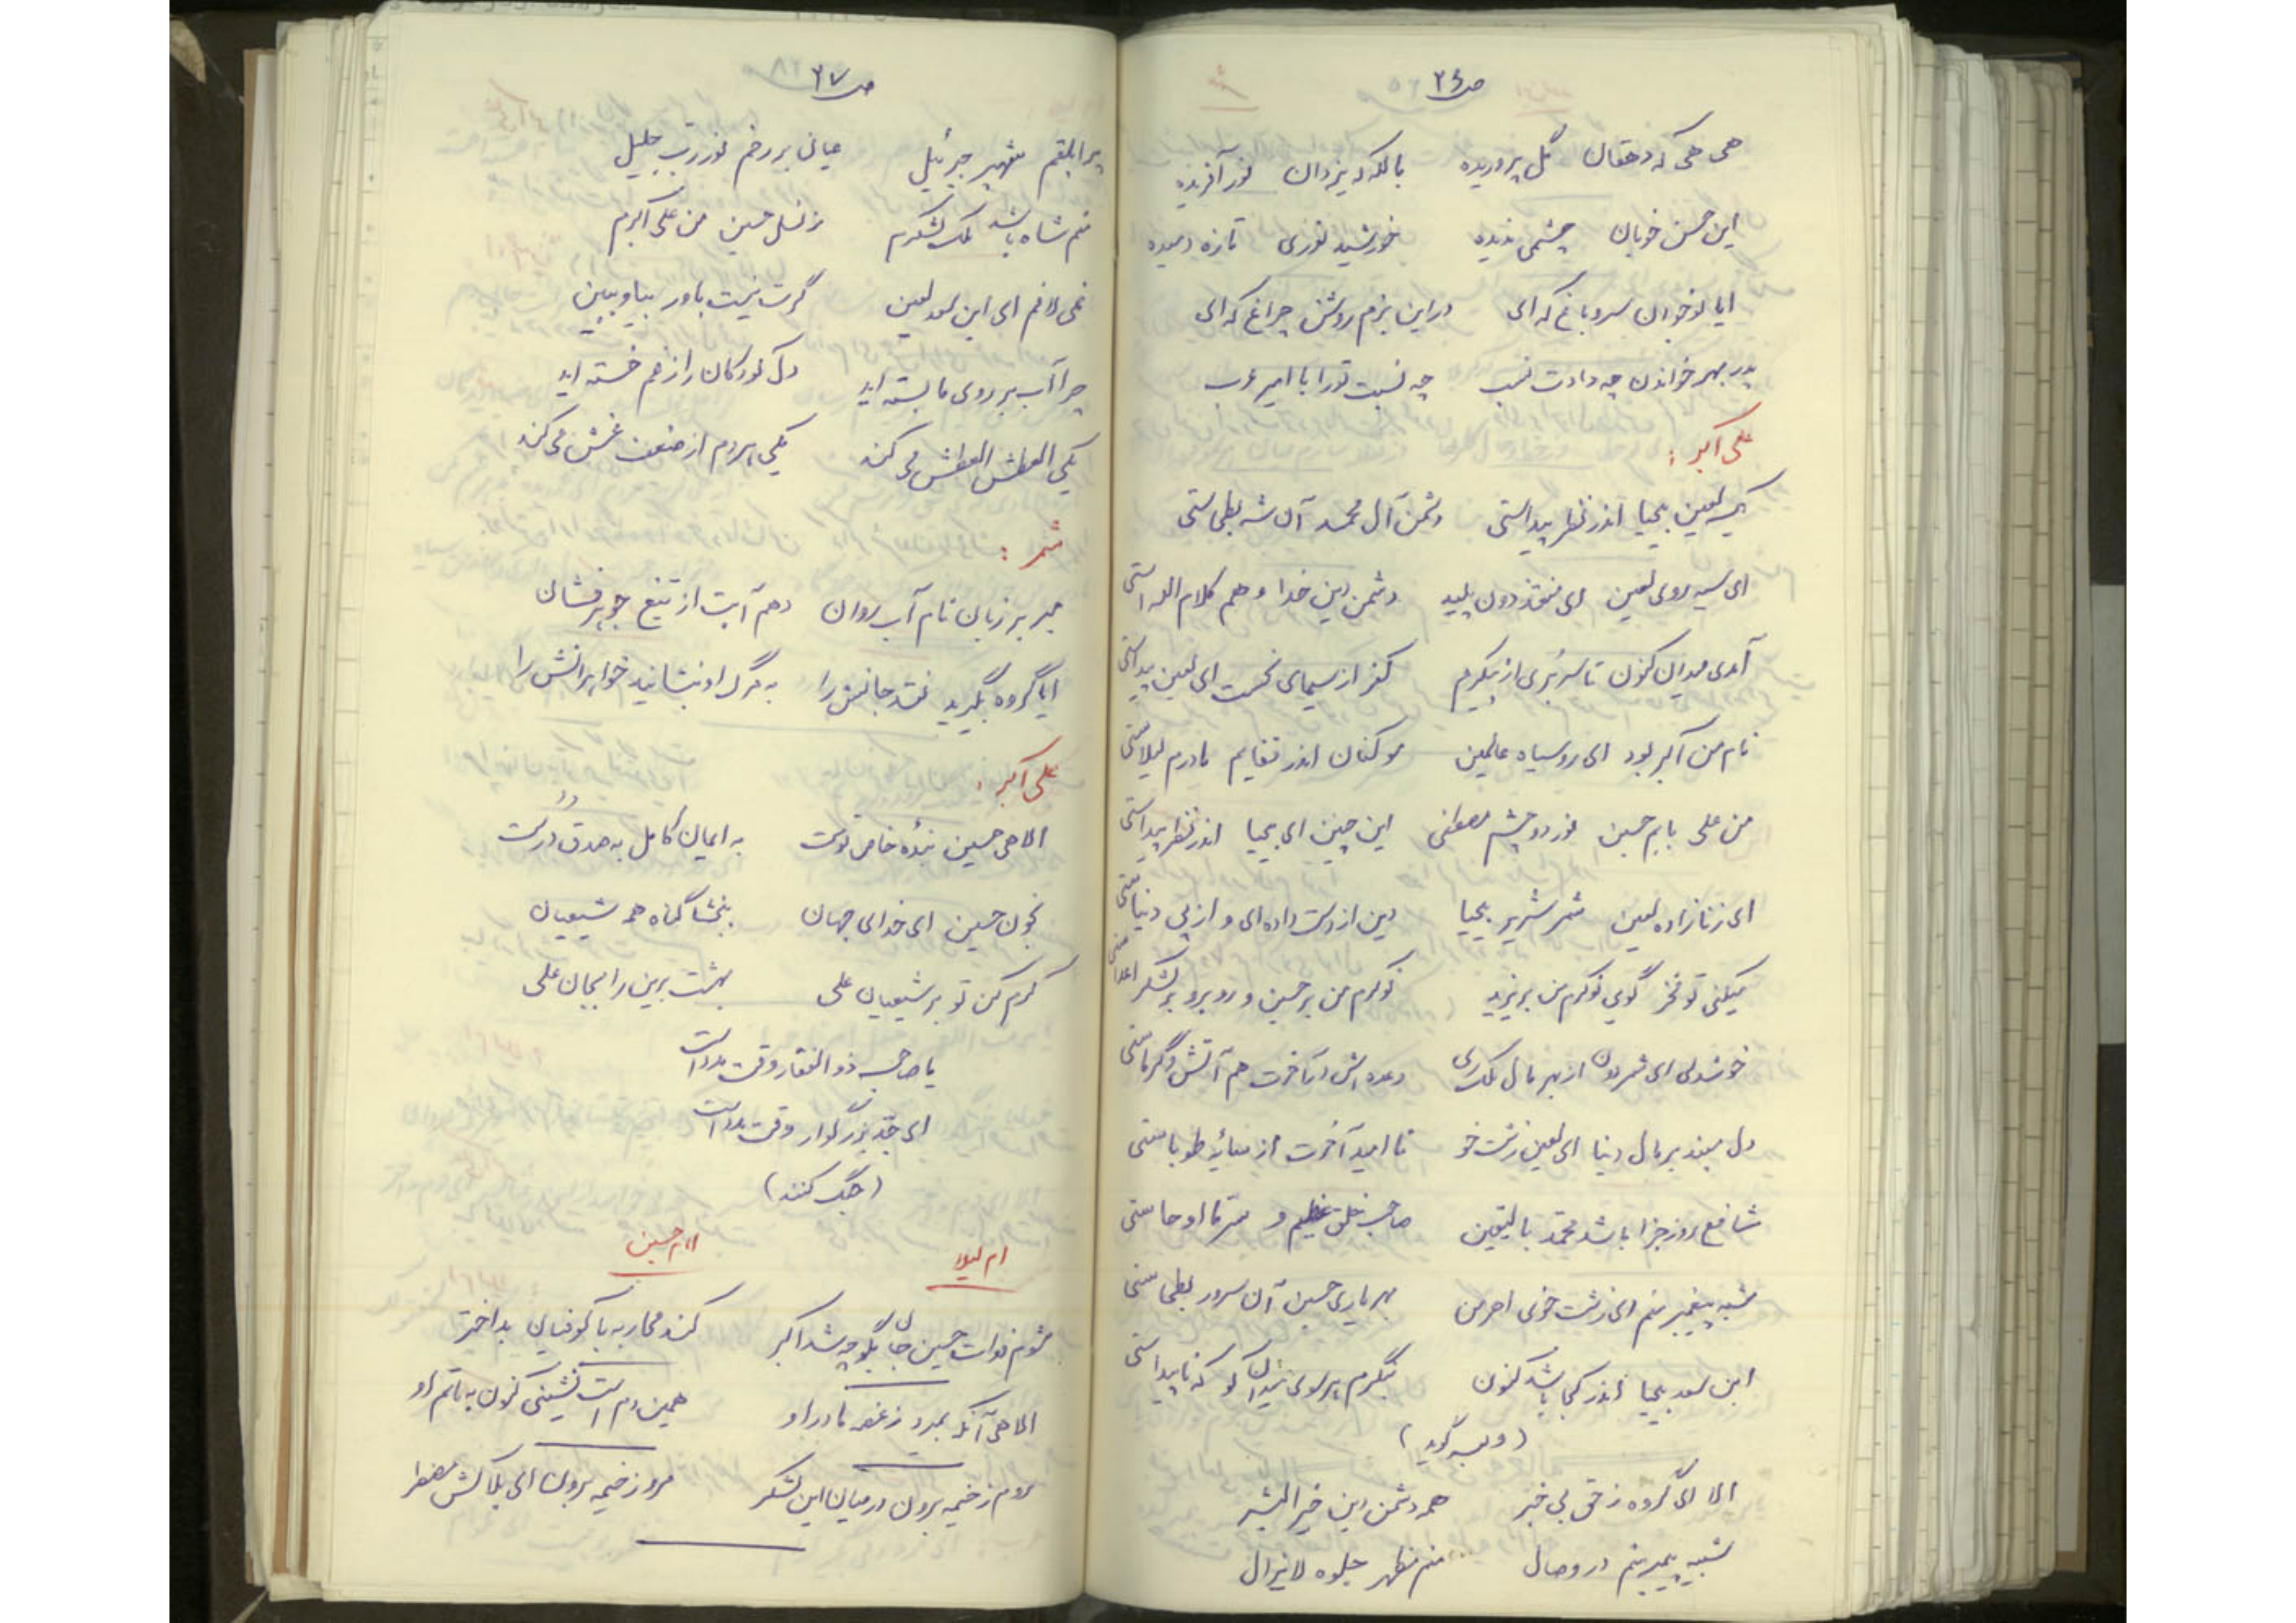 ص ۲۶
هی هی که دهقان گل پروریده بالله که یزدان نور آفریده
این حسن خوبان چشمی ندیده خورشید نوری تازه دمیده
ایا نوخوان سرو باغ که ای در این بزم روشن چراغ که ای
پدر بهر خواندن چه دادت نسب چه نسبت تو را با امیر عرب
علی اکبر :
لعین بیحیا اندر نظر پیداستی دشمن آل محمد آن شه بطحاستی
ای سیه روی لعین ای دون پلید دشمن دین خدا و هم کلام الله استی
آمدی میدان کنون تا سر بری از پیکرم کفر از سیمای نحست ای لعین پیداستی
نام من اکبر بود ای روسیاه عالمین مو کنان اندر قفایم مادرم لیلاستی
من علی بابم حسین نور دو چشم مصطفی این چنین ای بیحیا اندر نظر پیداستی
ای زنازاده لعین شمر شریر بیحیا دین از دست داده ای و از پی دنیاستی
میکنی تو فخر گویی نوکرم من بر یزید نوکرم من بر حسین و روبرو بر لشکر اعداستی
خوشدلی ای شمر دون از بهر مال ملک ری وعده اش در آخرت هم آتش و گرماستی
دل مبند بر مال دنیا ای لعین زشت خو نا امید آخرت از سایهٔ طوباستی
شافع روز جزا باشد محمد بالیقین صاحب خلق عظیم و
شبه پیغمبر منم ای زشت خوی اهرمن بهر یاری حسین آن سرور بطحاستی
ابن سعد بیحیا اندر کجا باشد کنون بنگرم بر سوی میدان کو که ناپیداستی
(و گوید)
الا ای گروه ز حق بی خبر همه دشمن دین خیر البشر
شبیه پیمبر منم در وصال منم مظهر جلوه لایزال
ص ۲۷
پر ابلقم شهپر جبرئیل عیان بر رخم نور رب جلیل
منم شاه باشد ملک لشکرم ز نسل حسین من علی اکبرم
نمی لافم ای ابن سعد لعین گرت نیست باور بیا و ببین
چرا آب بر روی ما بسته اید دل کودکان را ز غم خسته اید
یکی العطش العطش می کند یکی هردم از ضعف غش می کند
شمر :
مبر بر زبان نام آب روان دهم آبت از تیغ جوهر فشان
ایا گروه بگیرید نقد جانش را به مرگ او بنشانید خواهرانش را
علی اکبر :
الاهی حسین بندهٔ خاص توست به ایمان کامل به صدق درست
بخون حسین ای خدای جهان ببخشا گناه همه شیعیان
کرم کن تو بر شیعیان علی بهشت برین را بجان علی
یا صاحب ذوالفقار وقت مدد است
ای جد بزرگوار وقت مدد است
(جنگ کنند)
ام لیلا امام حسین
شوم فدات حسین جان بگو چه شد اکبر کند محاربه با کوفیان بد اختر
الاهی آنکه بمیرد ز غصه مادر او همین دم است نشینی کنون به ماتم او
روم ز خیمه برون در میان این لشکر مرو ز خیمه برون ای بلاکش مضطر